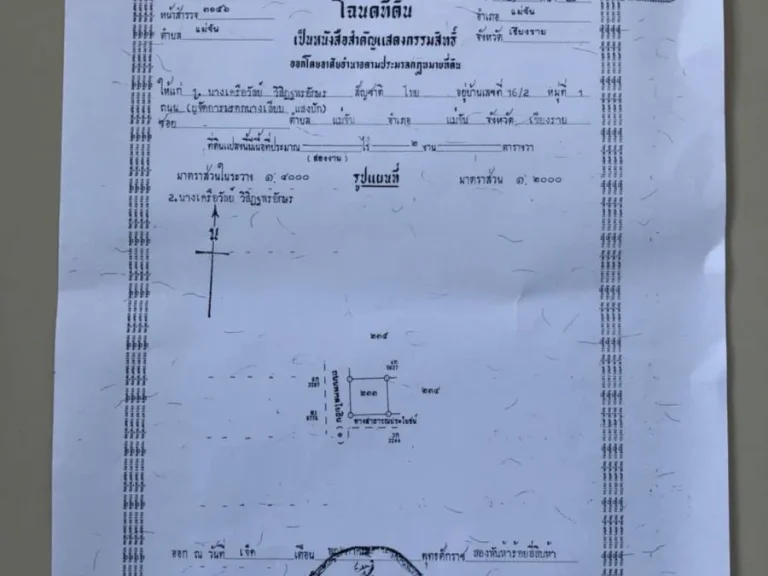 โฉนดที่ดิน
หน้าสำรวจ ๓๑๔๖
อำเภอ แม่จัน
ตำบล แม่จัน
เป็นหนังสือสำคัญแสดงกรรมสิทธิ์
จังหวัด เชียงราย
ออกโดยอาศัยอำนาจตามประมวลกฎหมายที่ดิน
ให้แก่ 1. นางเครือวัลย์ วิสิฎฐหรอักษร สัญชาติ ไทย อยู่บ้านเลขที่ 16/2 หมู่ที่ 1
ถนน (ผู้จัดการมรดกนางเลียบ แสงบัก)
ซอย ตำบล แม่จัน อำเภอ แม่จัน จังหวัด เชียงราย
ที่ดินแปลงนี้มีเนื้อที่ประมาณ ไร่ ๒ งาน ตารางวา
(สองงาน)
มาตราส่วนในระวาง ๑:๔๐๐๐ รูปแผนที่ มาตราส่วน ๑:๒๐๐๐
2. นางเครือวัลย์ วิสิฎฐหรอักษร
น
๒๓๕
๒๓๓
๒๓๔
ถนนพหลโยธิน (๑)
ทางสาธารณประโยชน์
ออก ณ วันที่ เจ็ด เดือน พุทธศักราช สองพันห้าร้อยยี่สิบห้า